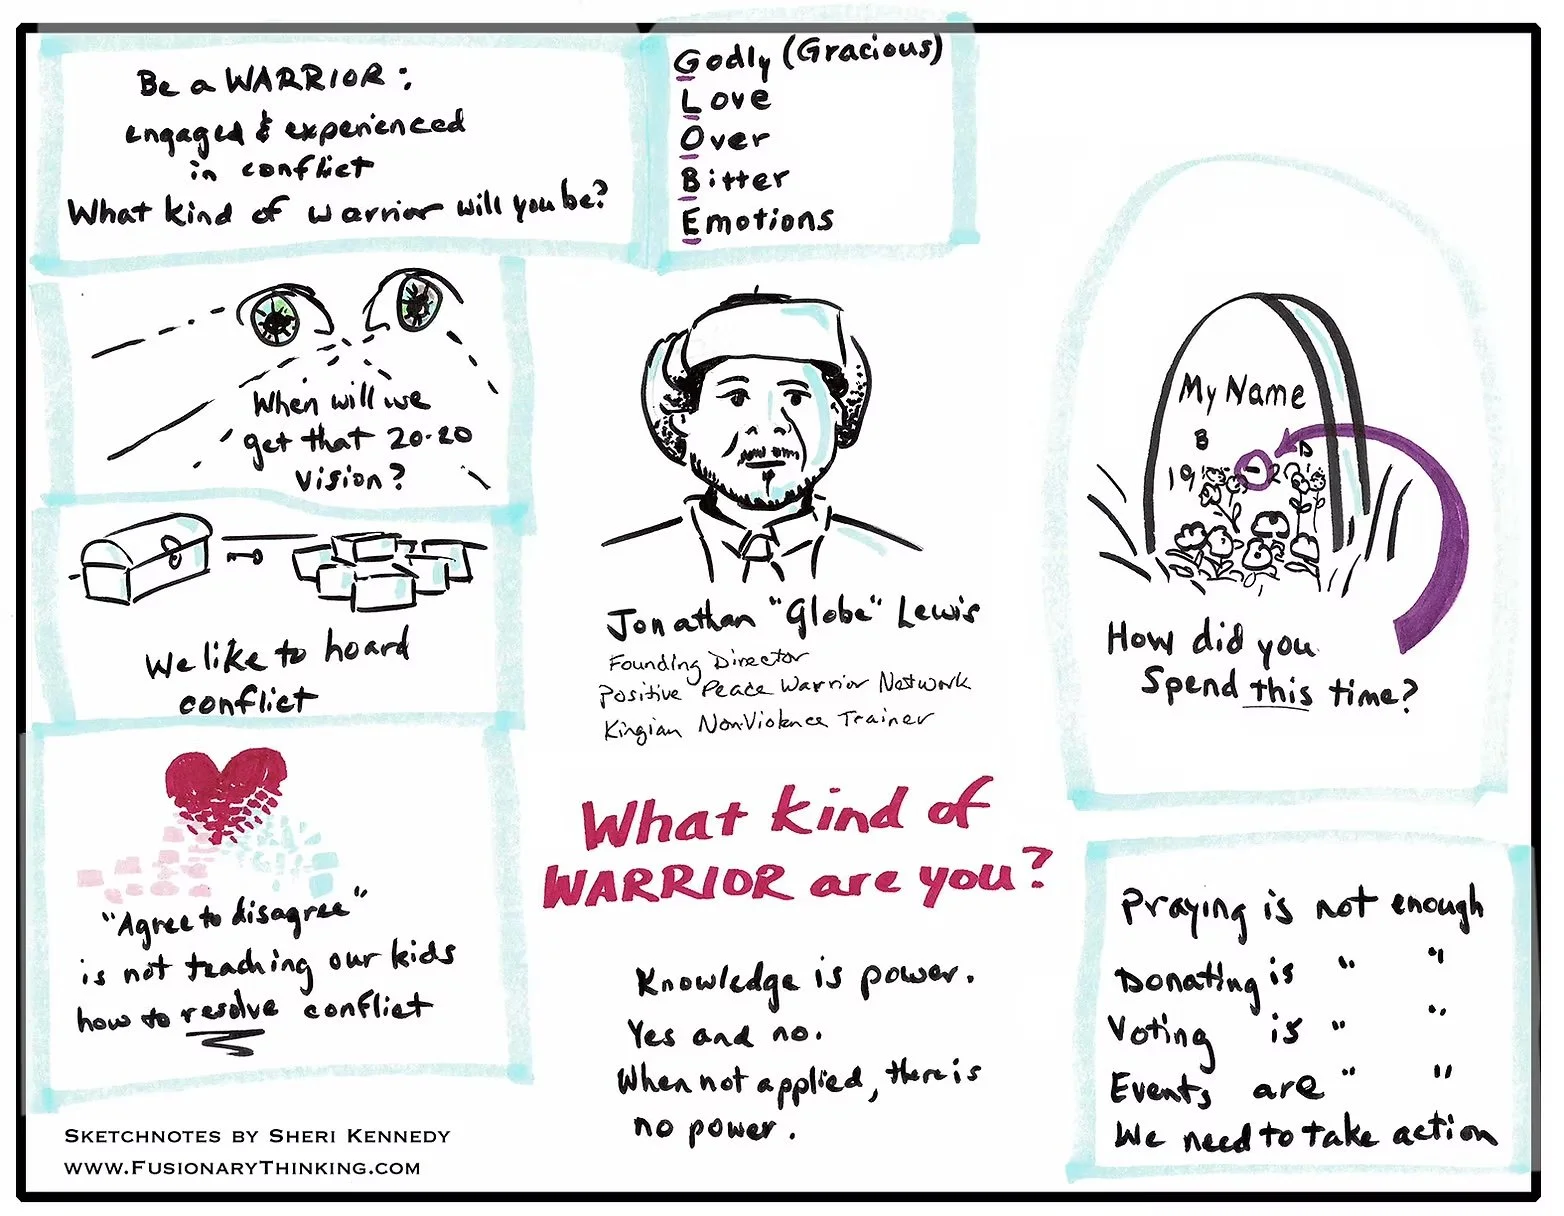 Be a WARRIOR:
engaged & experienced
in conflict
What kind of warrior will you be?
Godly (Gracious)
Love
Over
Bitter
Emotions
When will we
get that 20-20
vision?
We like to hoard
conflict
"Agree to disagree"
is not teaching our kids
how to resolve conflict
Sketchnotes by Sheri Kennedy
www.FusionaryThinking.com
Jonathan "Globe" Lewis
Founding Director
Positive Peace Warrior Network
Kingian NonViolence Trainer
What kind of
WARRIOR are you?
Knowledge is power.
Yes and no.
When not applied, there is
no power.
My Name
B D
19 - 2
How did you
Spend this time?
Praying is not enough
Donating is " "
Voting is " "
Events are " "
We need to take action